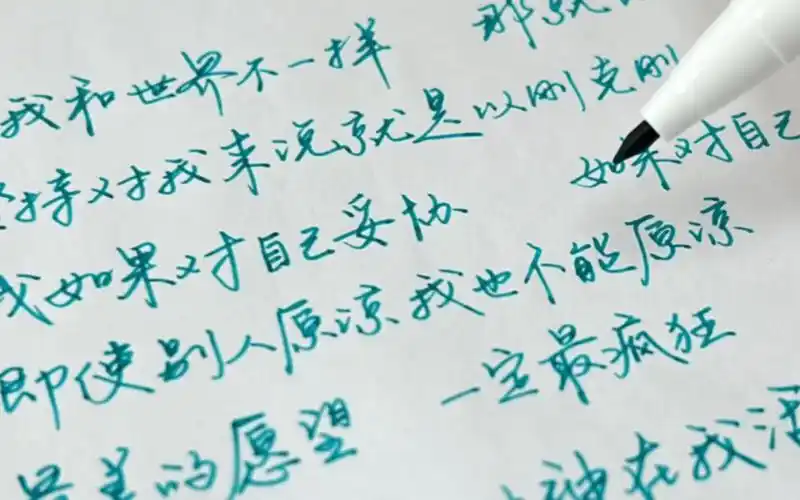 我和世界不一样 那就
坚持对我来说就是以刚克刚
我如果对自己妥协 如果对自己
即使别人原谅我也不能原谅
最美的愿望 一定最疯狂
神在我活